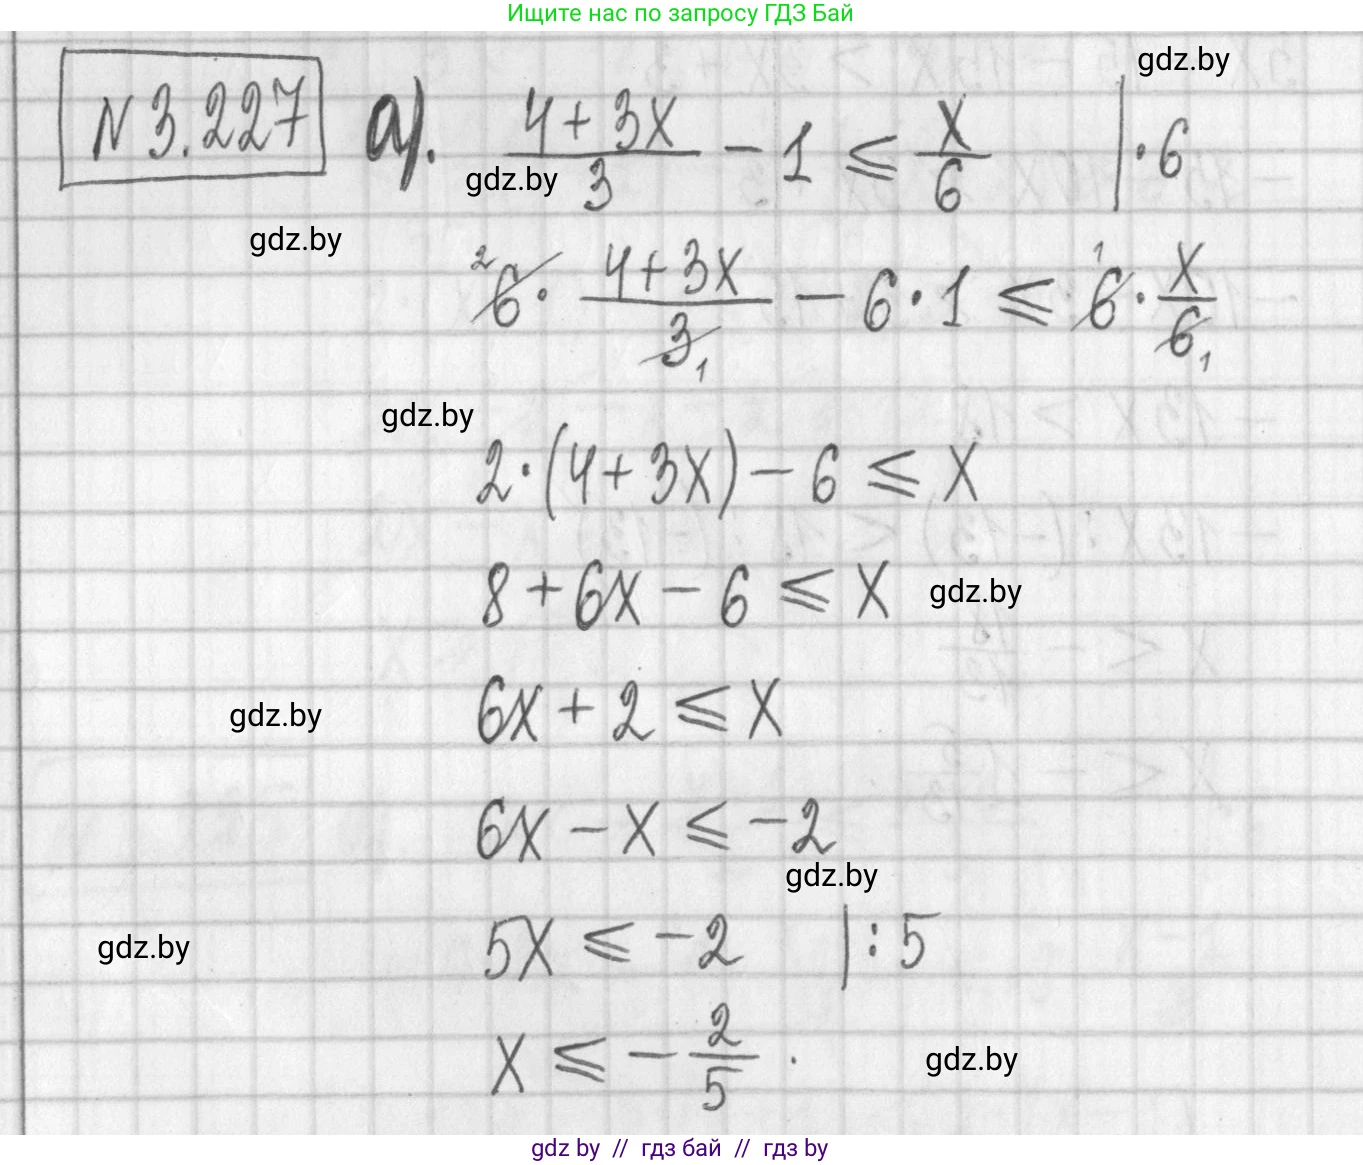 Ищите нас по запросу ГДЗ Бай
gdz.by
N 3.227 а). (4+3x)/3 - 1 ≤ x/6 | · 6
gdz.by
gdz.by
²6 · (4+3x)/3₁ - 6 · 1 ≤ ¹6 · x/6₁
gdz.by
2 · (4+3x) - 6 ≤ x
8 + 6x - 6 ≤ x gdz.by
gdz.by 6x + 2 ≤ x
6x - x ≤ -2
gdz.by
gdz.by 5x ≤ -2 | : 5
x ≤ - 2/5 . gdz.by
gdz by // гдз бай // гдз by